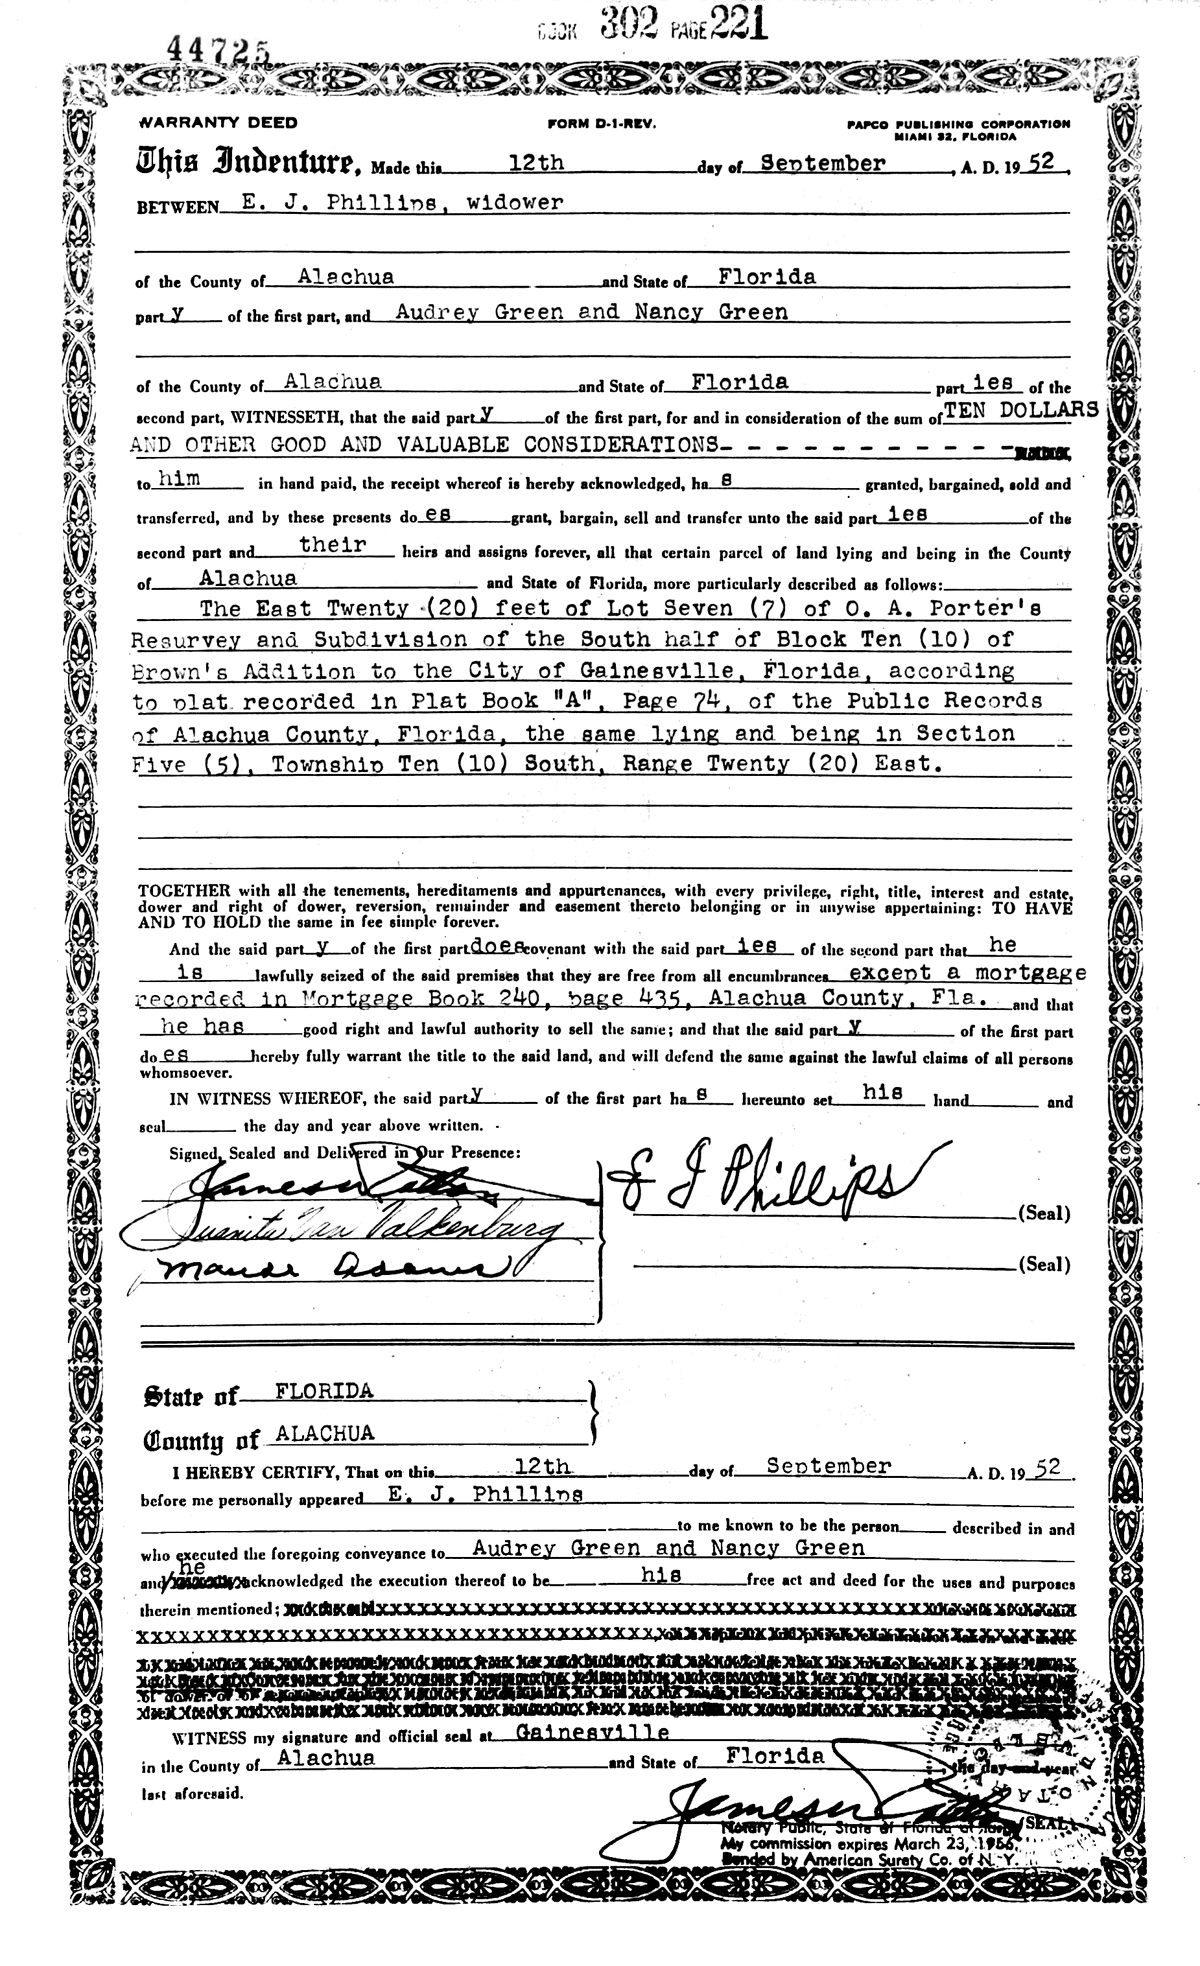 BOOK 302 PAGE 221
44725
WARRANTY DEED FORM D-1-REV. PAPCO PUBLISHING CORPORATION
MIAMI 32, FLORIDA
This Indenture, Made this 12th day of September, A. D. 19 52,
BETWEEN E. J. Phillips, widower
of the County of Alachua and State of Florida
part y of the first part, and Audrey Green and Nancy Green
of the County of Alachua and State of Florida part ies of the
second part, WITNESSETH, that the said part y of the first part, for and in consideration of the sum of TEN DOLLARS
AND OTHER GOOD AND VALUABLE CONSIDERATIONS- - - - - - - - - - - -
to him in hand paid, the receipt whereof is hereby acknowledged, ha s granted, bargained, sold and
transferred, and by these presents do es grant, bargain, sell and transfer unto the said part ies of the
second part and their heirs and assigns forever, all that certain parcel of land lying and being in the County
of Alachua and State of Florida, more particularly described as follows:
The East Twenty (20) feet of Lot Seven (7) of O. A. Porter's
Resurvey and Subdivision of the South half of Block Ten (10) of
Brown's Addition to the City of Gainesville, Florida, according
to plat recorded in Plat Book "A", Page 74, of the Public Records
of Alachua County, Florida, the same lying and being in Section
Five (5), Township Ten (10) South, Range Twenty (20) East.
TOGETHER with all the tenements, hereditaments and appurtenances, with every privilege, right, title, interest and estate,
dower and right of dower, reversion, remainder and easement thereto belonging or in anywise appertaining: TO HAVE
AND TO HOLD the same in fee simple forever.
And the said part y of the first part does covenant with the said part ies of the second part that he
is lawfully seized of the said premises that they are free from all encumbrances except a mortgage
recorded in Mortgage Book 240, page 435, Alachua County, Fla. and that
he has good right and lawful authority to sell the same; and that the said part y of the first part
do es hereby fully warrant the title to the said land, and will defend the same against the lawful claims of all persons
whomsoever.
IN WITNESS WHEREOF, the said part y of the first part ha s hereunto set his hand and
seal the day and year above written.
Signed, Sealed and Delivered in Our Presence:
E J Phillips (Seal)
Juanita Van Valkenburg
Maude Adams (Seal)
State of FLORIDA
County of ALACHUA
I HEREBY CERTIFY, That on this 12th day of September A. D. 19 52.
before me personally appeared E. J. Phillips
to me known to be the person described in and
who executed the foregoing conveyance to Audrey Green and Nancy Green
he
and acknowledged the execution thereof to be his free act and deed for the uses and purposes
therein mentioned;
WITNESS my signature and official seal at Gainesville
in the County of Alachua and State of Florida, the day and year
last aforesaid.
(SEAL)
Notary Public, State of Florida at large
My commission expires March 23, 1956.
Bonded by American Surety Co. of N. Y.